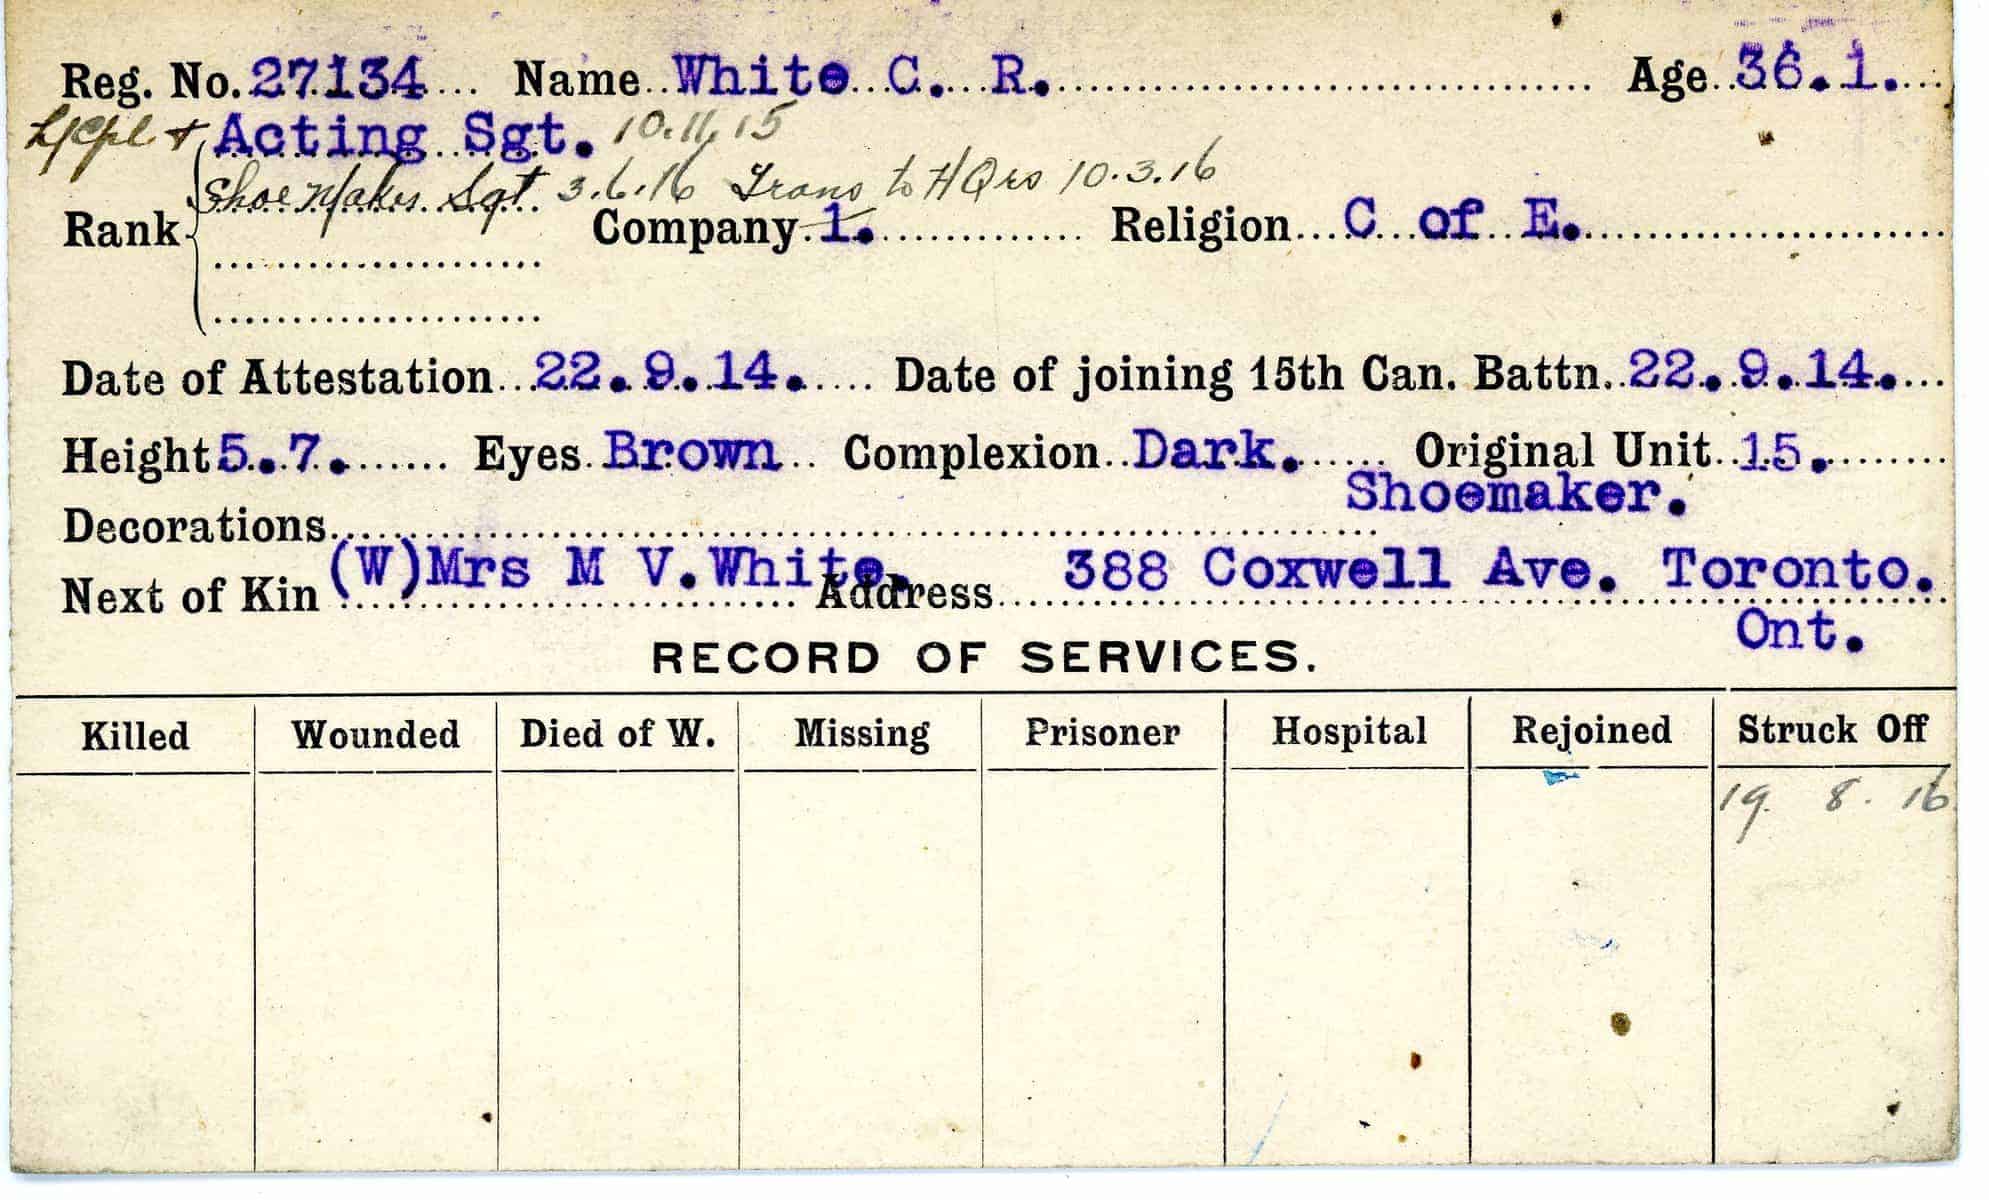 Reg. No. 27134 Name White C. R. Age 36.1.
L/Cpl & Acting Sgt. 10.11.15
Shoe Maker Sgt 3.6.16 Trans to HQrs 10.3.16
Rank Company 1. Religion C of E.
Date of Attestation 22.9.14. Date of joining 15th Can. Battn. 22.9.14.
Height 5.7. Eyes Brown Complexion Dark. Original Unit 15.
Shoemaker.
Decorations
Next of Kin (W)Mrs M V.White. Address 388 Coxwell Ave. Toronto.
Ont.
RECORD OF SERVICES.
Killed Wounded Died of W. Missing Prisoner Hospital Rejoined Struck Off
19. 8. 16